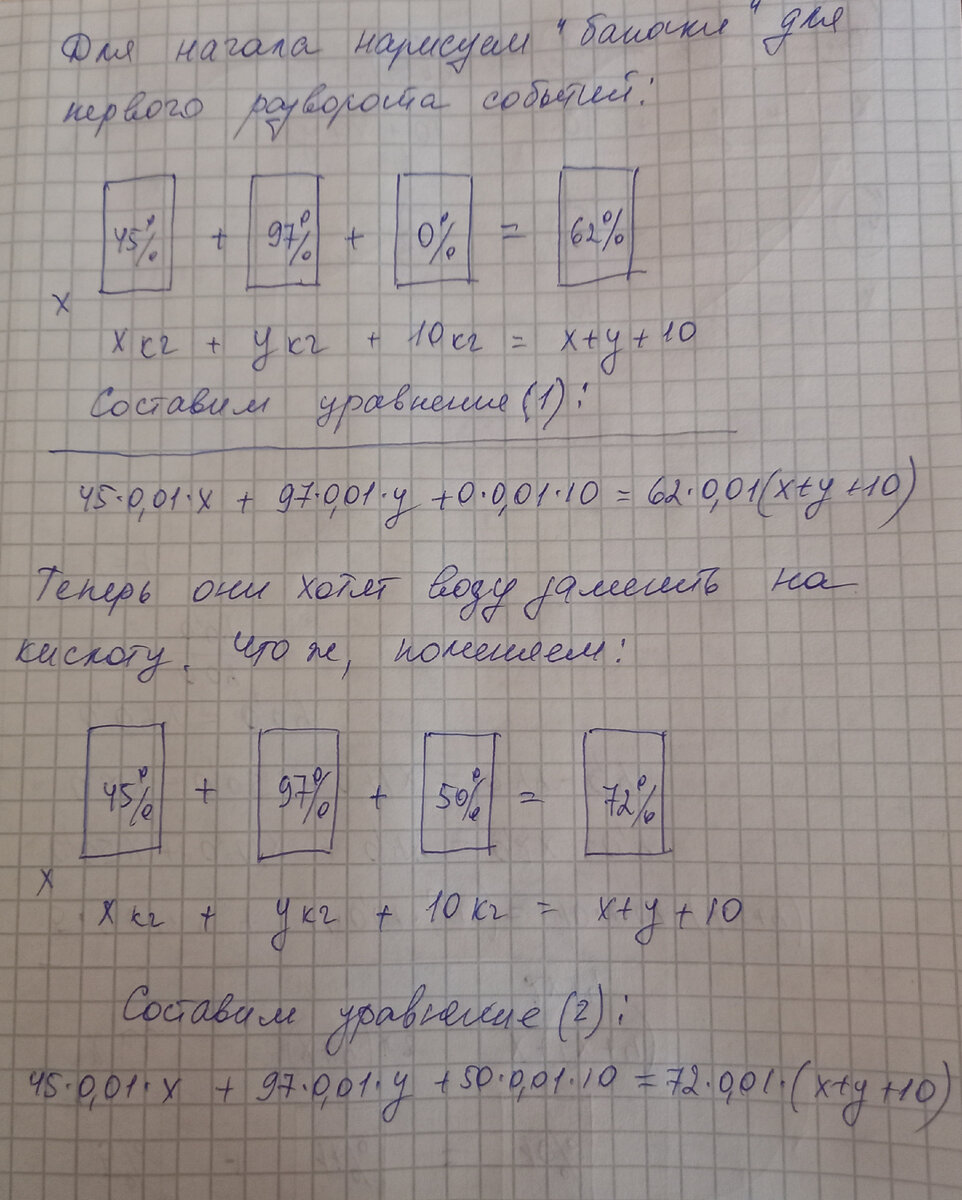 Для начала нарисуем "баночки" для
первого разворота событий:
45% + 97% + 0% = 62%
x
x кг + y кг + 10 кг = x+y+10
Составим уравнение (1):
45·0,01·x + 97·0,01·y + 0·0,01·10 = 62·0,01(x+y+10)
Теперь они хотят воду заменить на
кислоту. Что ж, поменяем:
45% + 97% + 50% = 72%
x
x кг + y кг + 10 кг = x+y+10
Составим уравнение (2):
45·0,01·x + 97·0,01·y + 50·0,01·10 = 72·0,01·(x+y+10)